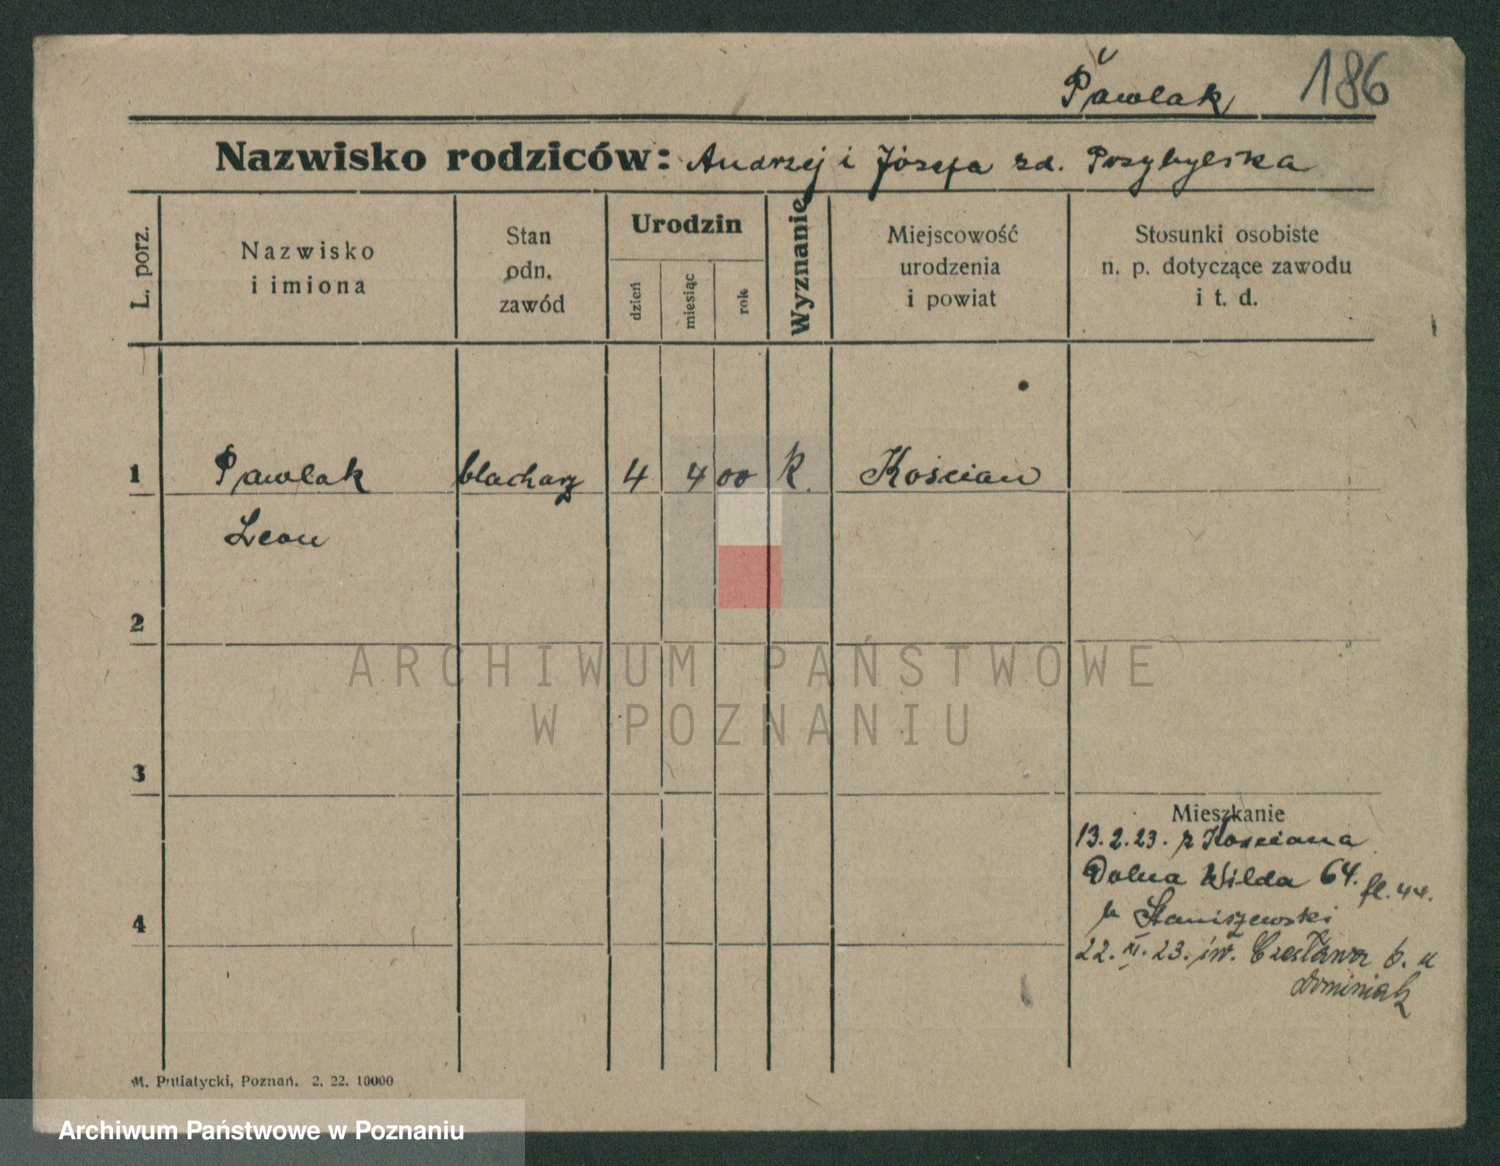 Pawlak 186
Nazwisko rodziców: Andrzej i Józefa zd. Przybylska
L. porz.
Nazwisko
i imiona
Stan
odn.
zawód
Urodzin
dzień
miesiąc
rok
Wyznanie
Miejscowość
urodzenia
i powiat
Stosunki osobiste
n. p. dotyczące zawodu
i t. d.
1 Pawlak blacharz 4 4 00 k. Kościan
Leon
2
3
4
Mieszkanie
13.2.23. z Kościana
Dolna Wilda 64.
u Staniszewski
22. XI. 23. św. Czesława 6. u
Dominiak
M. Putiatycki, Poznań. 2. 22. 10000
ARCHIWUM PAŃSTWOWE
W POZNANIU
Archiwum Państwowe w Poznaniu